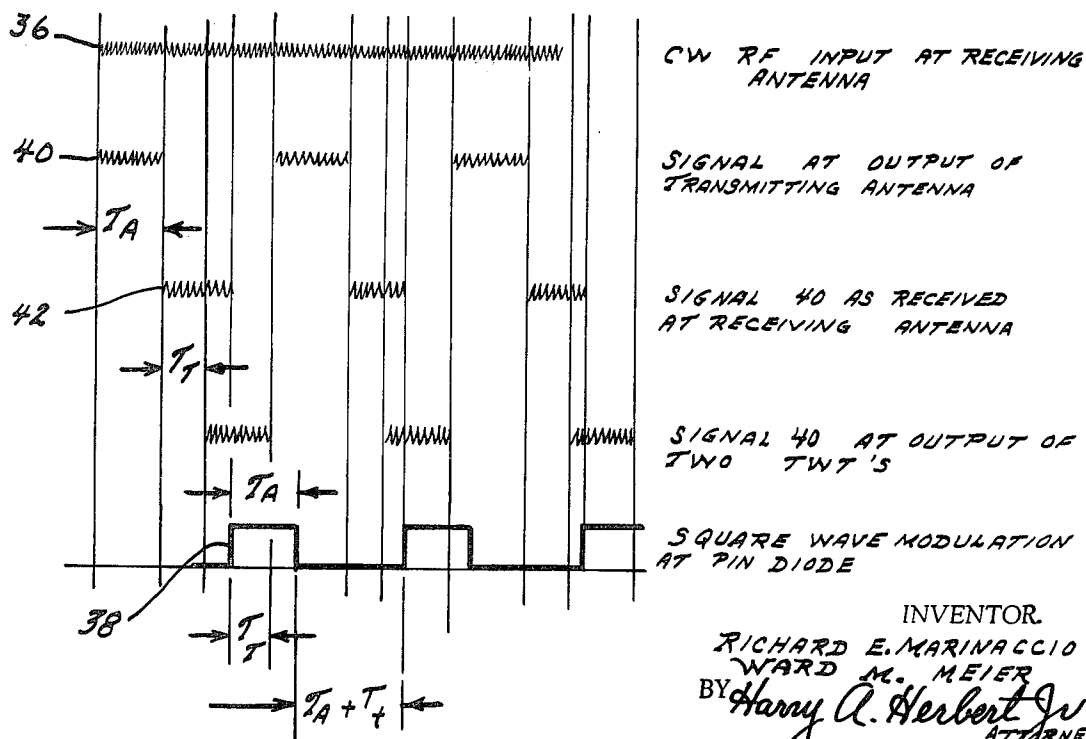 36
CW RF INPUT AT RECEIVING
ANTENNA
40
SIGNAL AT OUTPUT OF
TRANSMITTING ANTENNA
TA
42
SIGNAL 40 AS RECEIVED
AT RECEIVING ANTENNA
TT
SIGNAL 40 AT OUTPUT OF
TWO TWT'S
TA
SQUARE WAVE MODULATION
AT PIN DIODE
38
TT
TA + Tt
INVENTOR.
RICHARD E. MARINACCIO
WARD M. MEIER
BY Harry A. Herbert Jr
ATTORNE